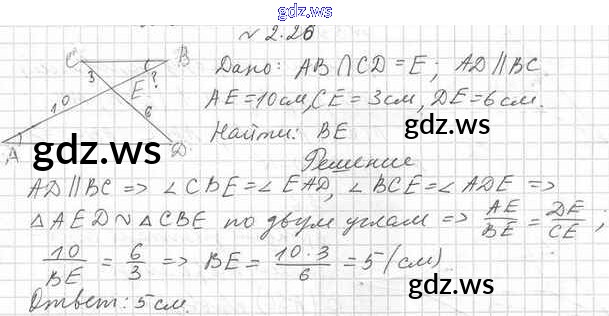 gdz.ws
№ 2.26
C B
3
E ?
10
6
A D
Дано: AB ∩ CD = E; AD ∥ BC.
AE = 10 см, CE = 3 см, DE = 6 см.
Найти: BE
gdz.ws
gdz.ws
Решение
AD ∥ BC => ∠CBE = ∠EAD, ∠BCE = ∠ADE =>
△AED ~ △CBE по двум углам => AE/BE = DE/CE;
10/BE = 6/3 => BE = 10·3/6 = 5 (см)
gdz.ws
Ответ: 5 см.